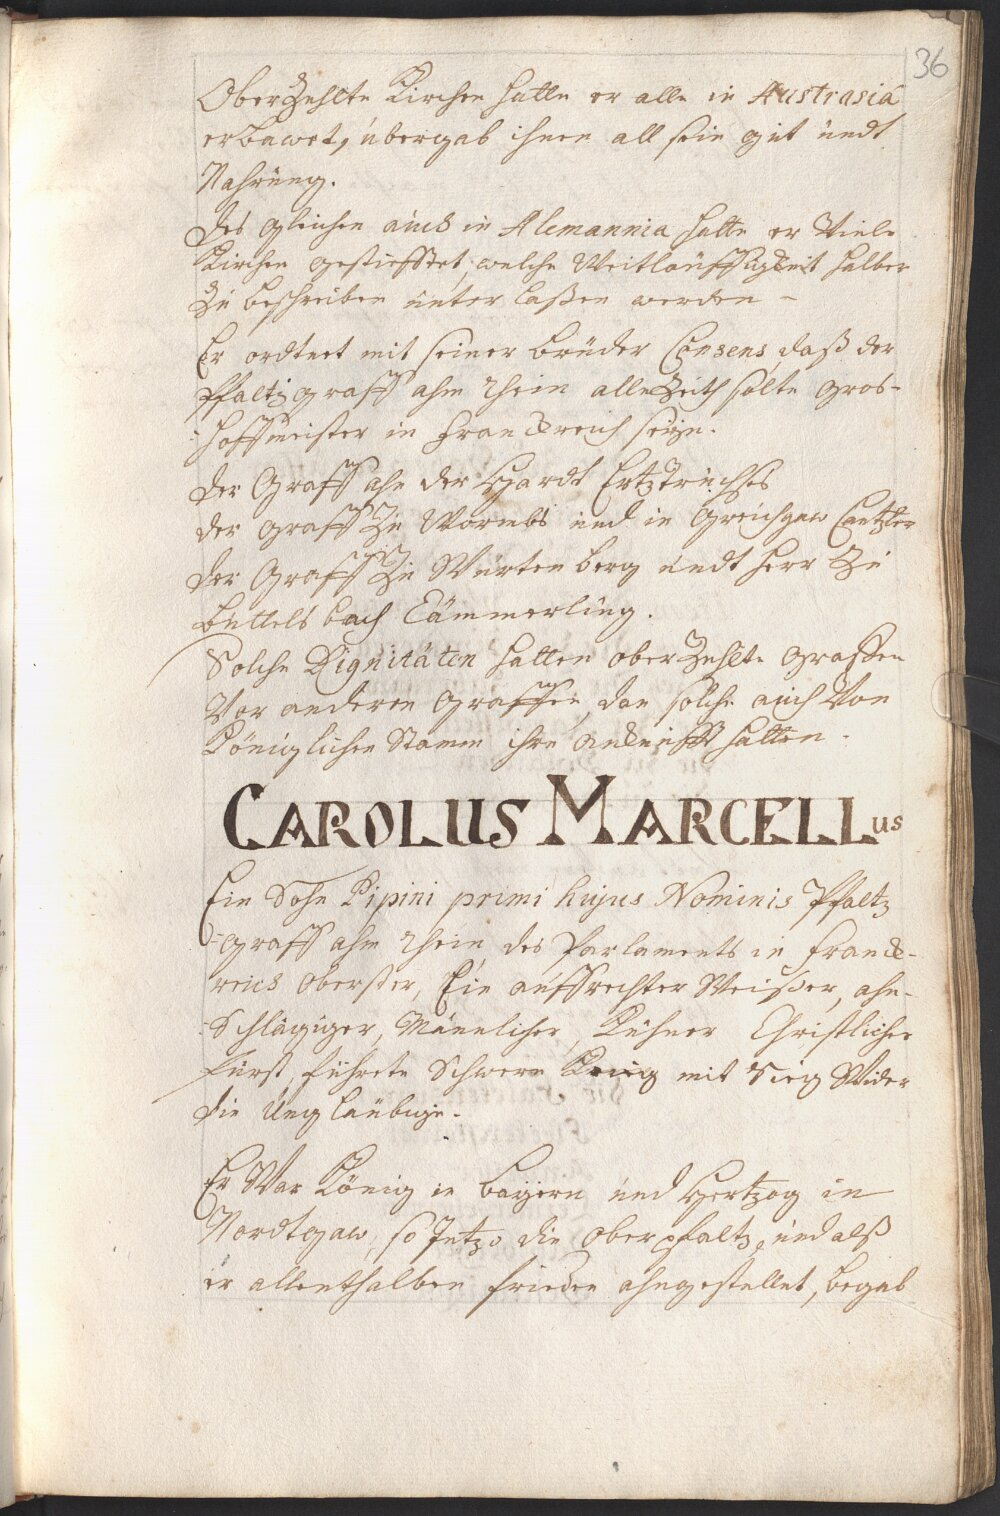 36
Oberzehlte Kirchen hatte er alle in Austrasia
erbawet, übergab ihnen all sein gut undt
Nahrung.
Des gleichen auch in Alemannia hatte er Viele
Kirchen gestiefftet, welche Weitläuffigkeit halber
Zu beschreiben unter laßen werden –
Er ordtnet mit seiner brüder Consens, daß der
Pfaltzgraff ahm Rhein allezeith solte Gros-
-hoffmeister in Franckreich seyn.
Der Graff ahn der Hardt Ertztruchses
der graff Zu Wormbs und in Greichgaw Cantzler
der Graff Zu Würtenberg undt herr Zu
Büttelsbach Cämmerling.
Solche Dignitäten hatten oberzehlte graffen
Vor anderen graffen, dan solche auch Von
Königlichen Stamm ihre ankunfft hatten.
CAROLUS MARCELLus
Ein Sohn Pipini primi hujus Nominis Pfaltz
-graff ahm Rhein, des Parlaments in Franck-
reich Oberster, Ein auffrechter Weißer, ahn-
-Schlägiger, Männlicher, Kühner Christlicher
fürst, führete Schwere Krieg mit Sieg Wider
die Unglaubige.
Er War König in bayern und Hertzog in
Nordtgaw, so Jetzo die Oberpfaltz, und alß
er allenthalben frieden ahngestellet, begab